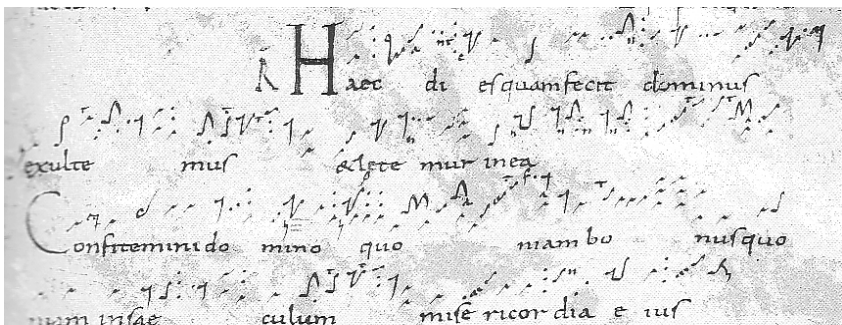 R Haec di esquamfecit dominus
exulte mus &lete mur inea
Confiteminido mino quo niam bo nusquo
niam insae culum mise ricor dia e ius